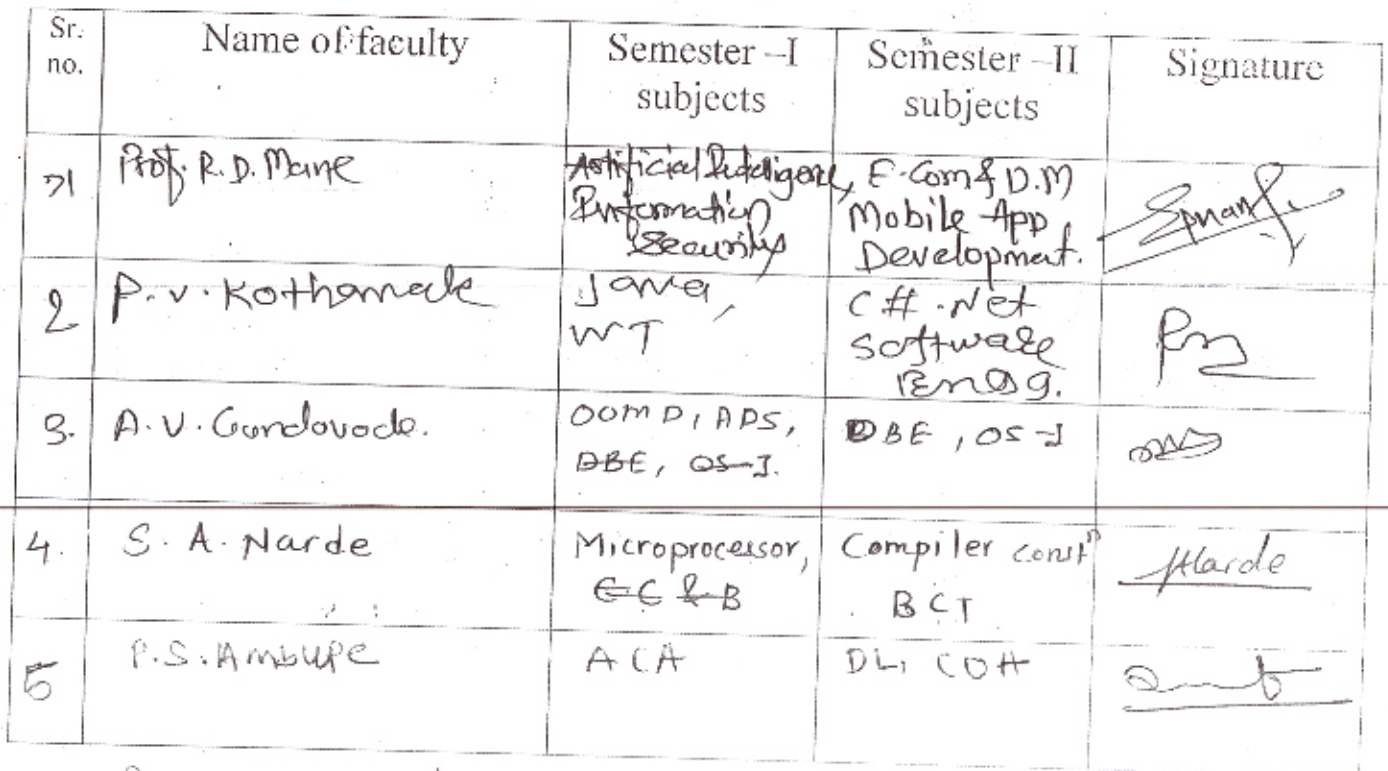 Sr. no. Name of faculty Semester –I subjects Semester –II subjects Signature
1 Prof. R. D. Mane Artificial Intelligence, E-Com & D.M
Information Mobile App
Security Development.
2 P. V. Kothamale Java, C# .Net
WT Software
Engg.
3. A. V. Gundavade. OOMD, ADS, DBE, OS-I
DBE, OS-I.
4. S. A. Narde Microprocessor, Compiler constn
CC & B BCT
Narde
5 P.S. Ambupe ACA DL, COA